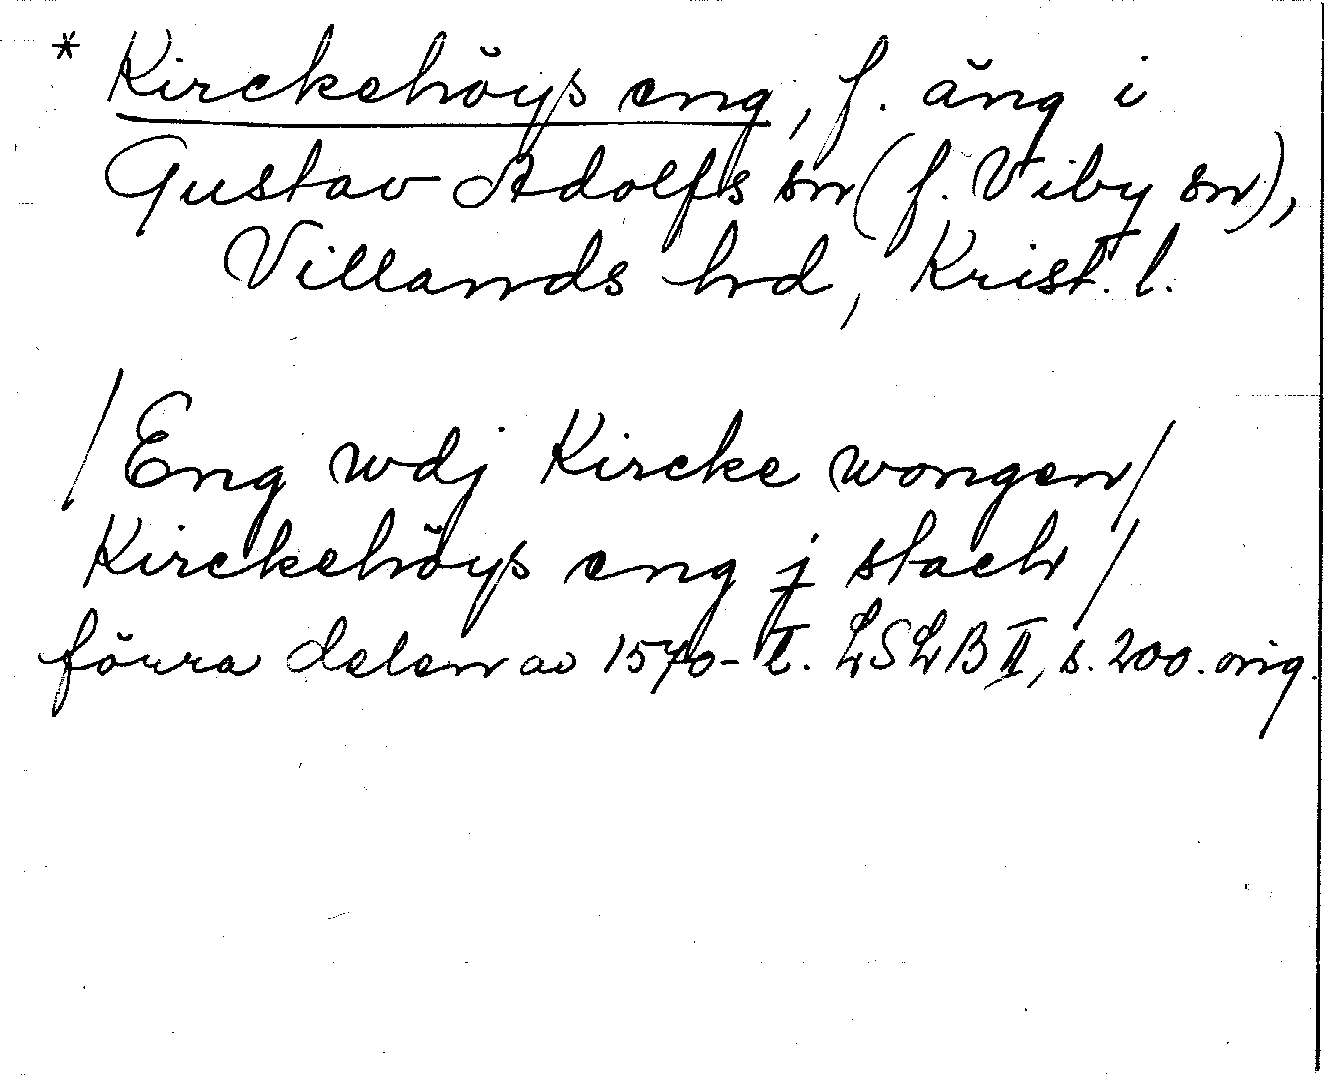 * Kirckehöys eng, f. äng i
Gustav Adolfs sn (f. Viby sn),
Villands hd, Krist. l.
/Eng wdj Kircke wongen/
Kirckehöys eng j stach /
förra delen av 1570-t. LSLB II, s. 200. orig.